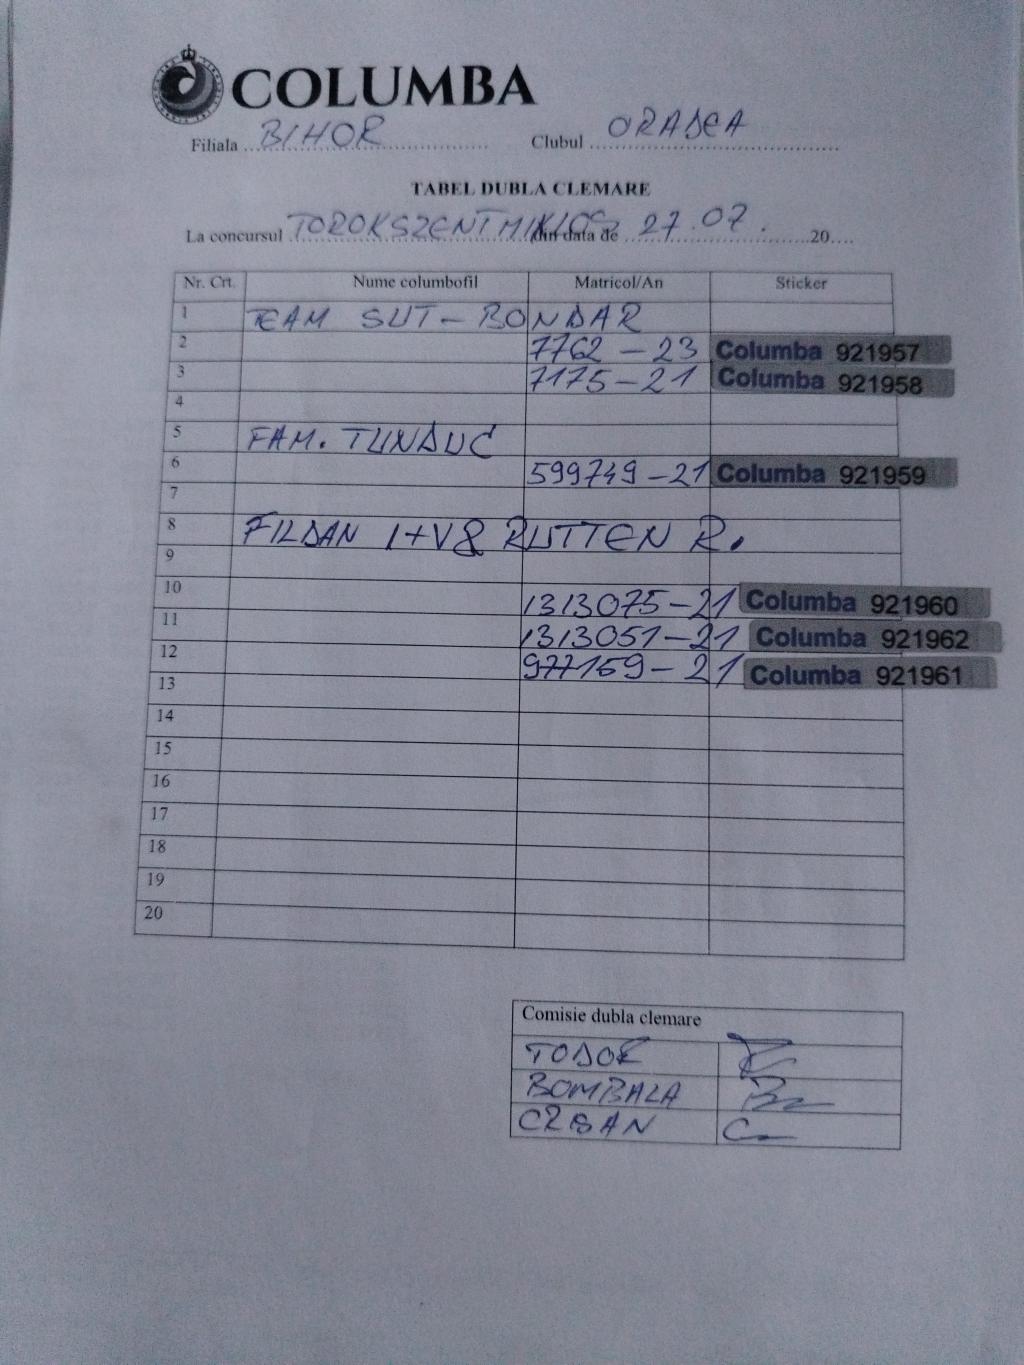 COLUMBA
Filiala BIHOR Clubul ORADEA
TABEL DUBLA CLEMARE
La concursul TOROKSZENTMIKLOS din data de 27.07. 20....
Nr. Crt. Nume columbofil Matricol/An Sticker
1 TEAM SUT-BONDAR
2 7762-23 Columba 921957
3 7175-21 Columba 921958
4
5 FAM. TUNDUC
6 599749-21 Columba 921959
7
8 FILDAN I+V & RUTTEN R.
9
10 1313075-21 Columba 921960
11 1313051-21 Columba 921962
12 977159-21 Columba 921961
13
14
15
16
17
18
19
20
Comisie dubla clemare
TODOR
BOMBALA
CRISAN